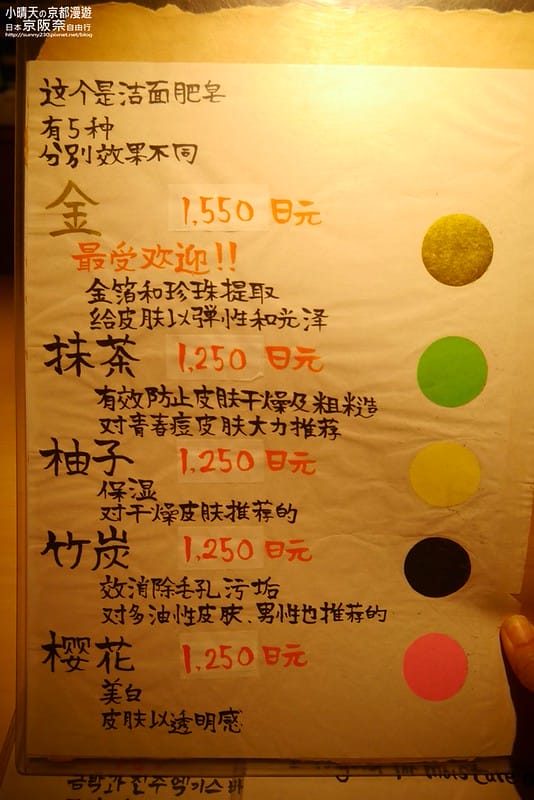 小晴天の京都漫遊
日本京阪奈自由行
http://sunny230.pixnet.net/blog
这个是洁面肥皂
有5种
分别效果不同
金 1,550 日元
最受欢迎!!
金箔和珍珠提取
给皮肤以弹性和光泽
抹茶 1,250 日元
有效防止皮肤干燥及粗糙造
对青春痘皮肤大力推荐
柚子 1,250 日元
保湿
对干燥皮肤推荐的
竹炭 1,250 日元
效消除毛孔污垢
对多油性皮肤、男性也推荐的
樱花 1,250 日元
美白
皮肤以透明感
금박과 진주 엑기스 바
for moisture